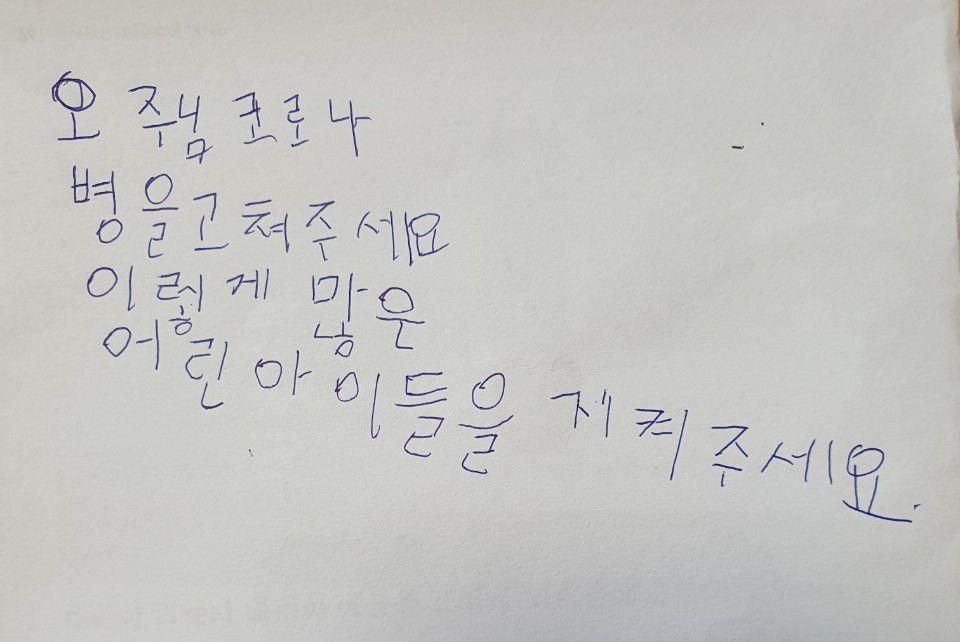 오 주님 코로나
병을고쳐주세요
이렇게 많은
어린아이들을 지켜주세요.